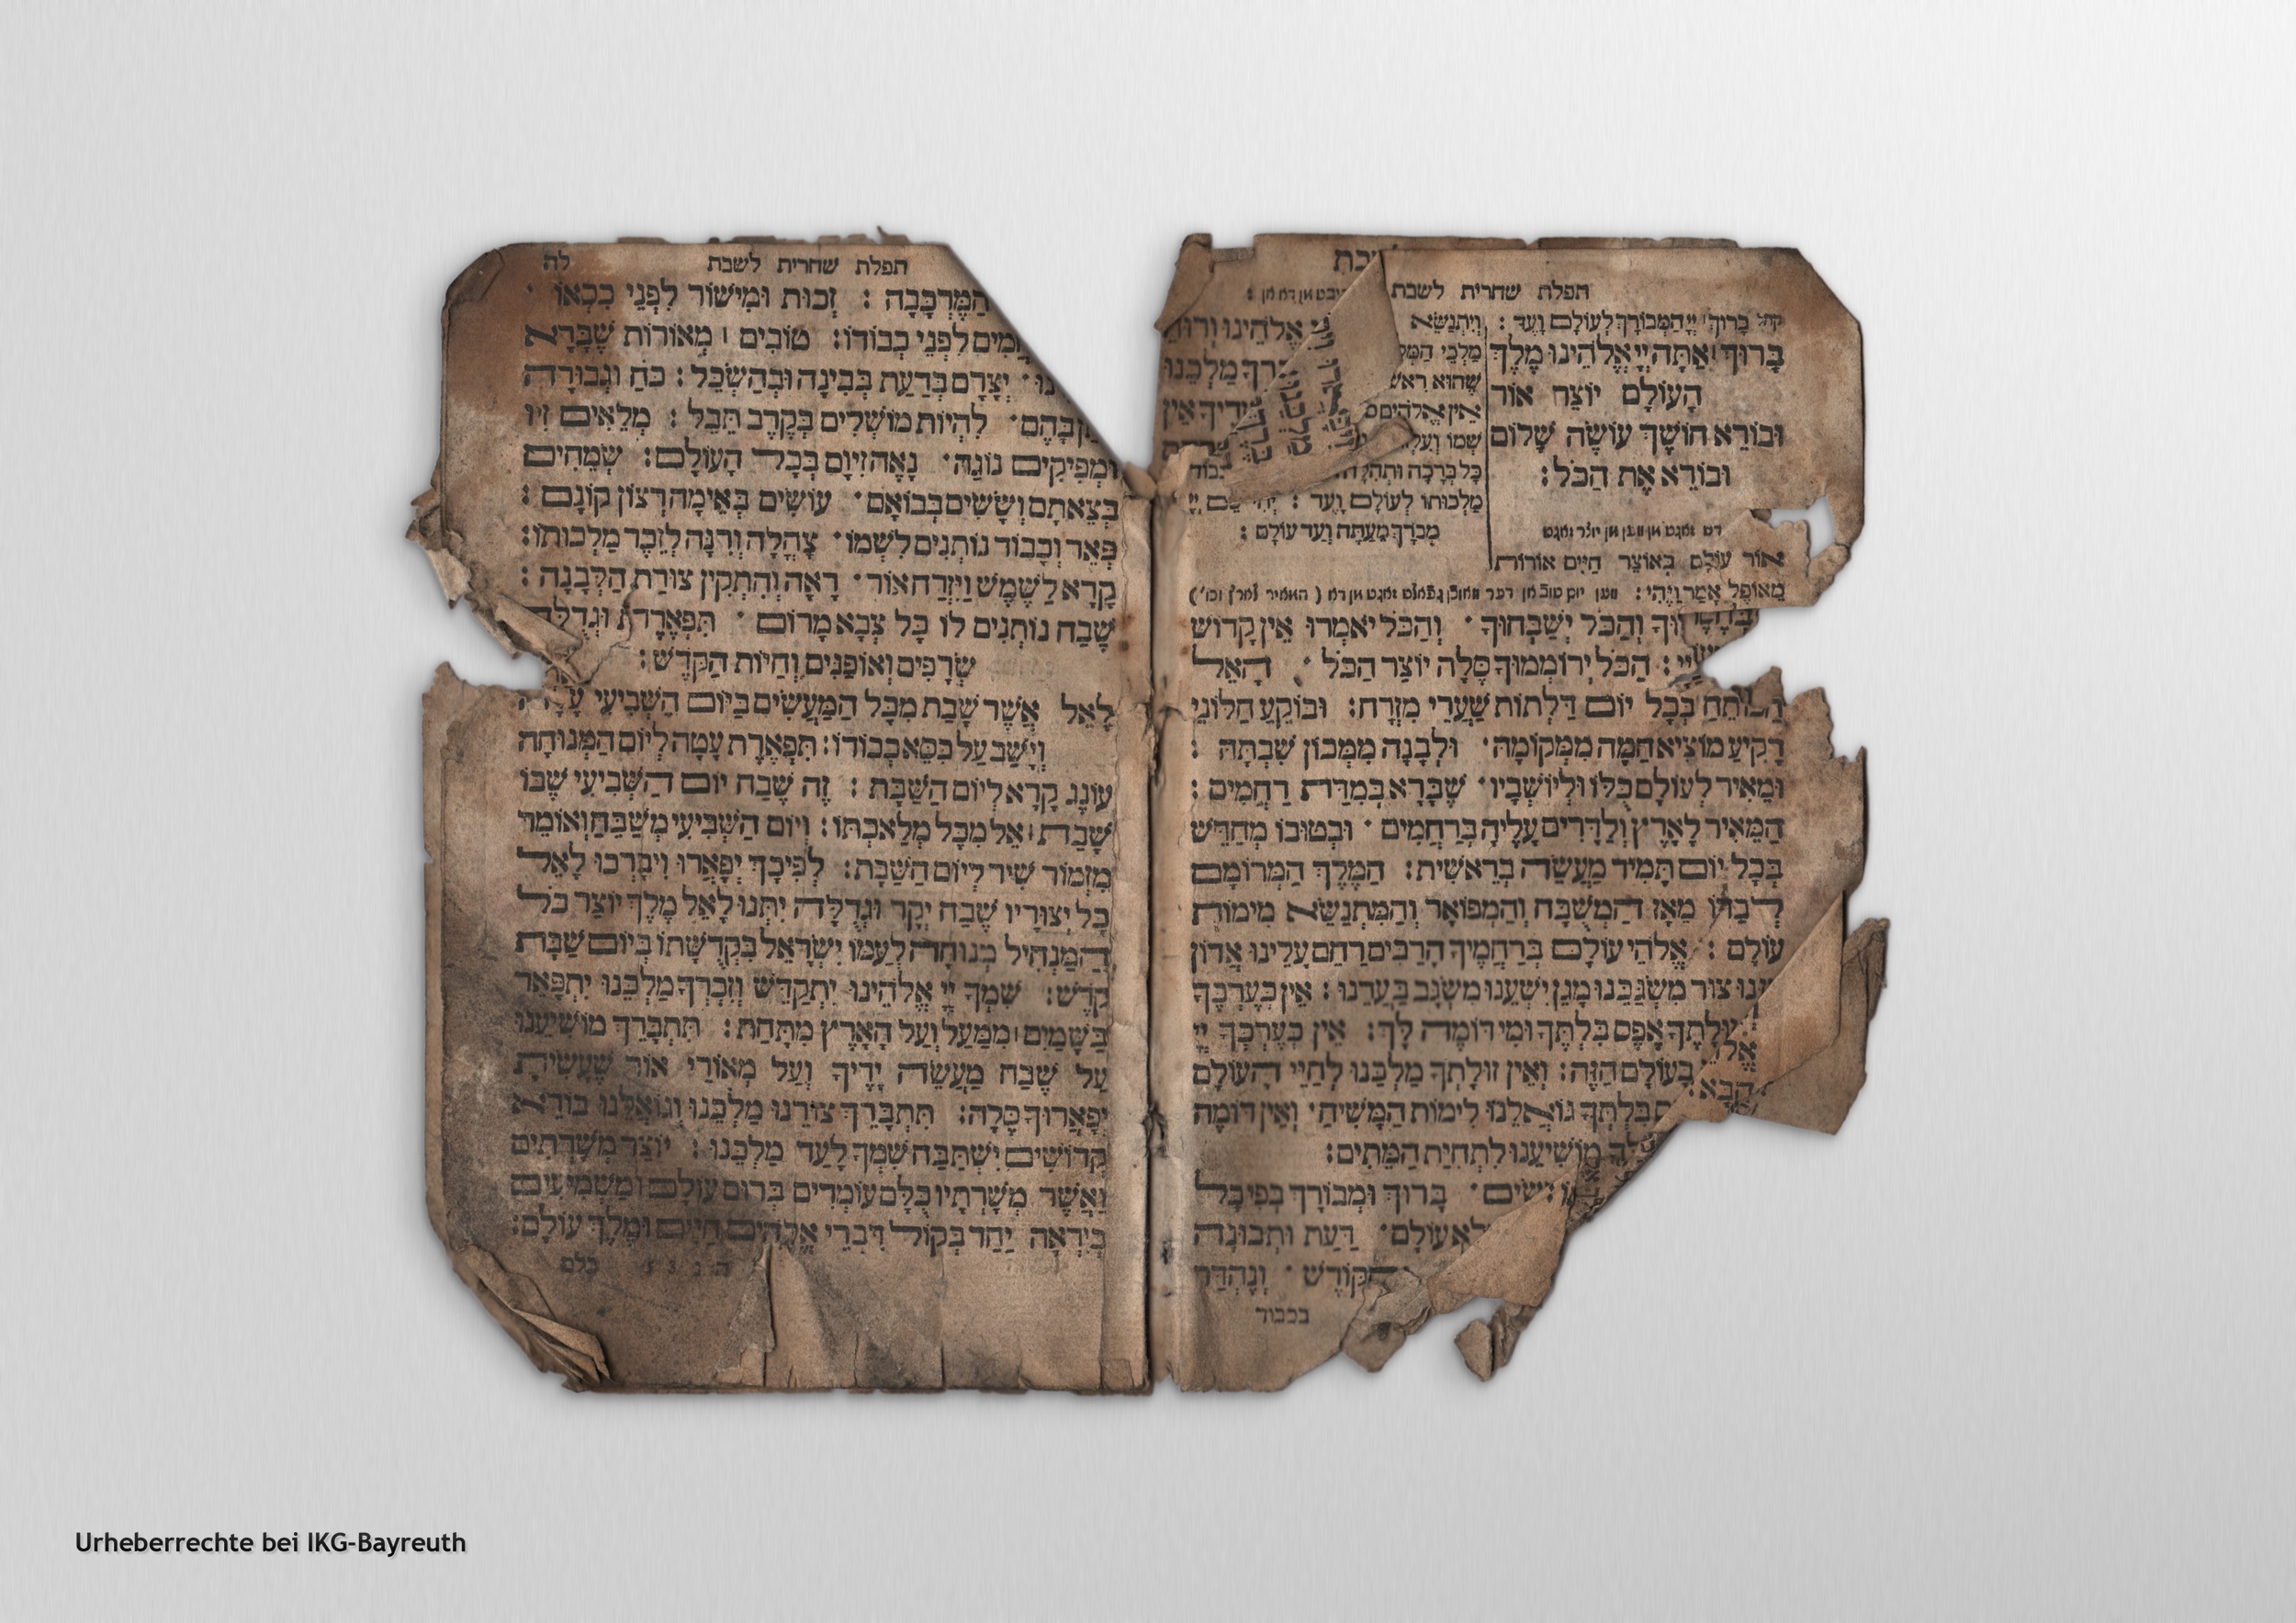 תפלת שחרית לשבת
קהל בָּרוּךְ יְיָ הַמְבוֹרָךְ לְעוֹלָם וָעֶד :
בָּרוּךְ אַתָּה יְיָ אֱלֹהֵינוּ מֶלֶךְ
הָעוֹלָם יוֹצֵר אוֹר
וּבוֹרֵא חוֹשֶׁךְ עוֹשֶׂה שָׁלוֹם
וּבוֹרֵא אֶת הַכֹּל :
אוֹר עוֹלָם בְּאוֹצַר חַיִּים אוֹרוֹת
מֵאוֹפֶל אָמַר וַיֶּהִי :
וְיִתְנַשֵּׂא
מַלְכֵי
שֶׁהוּא
אֵין אֱלֹהִים
שְׁמוֹ
כָּל בְּרָכָה
מַלְכוּתוֹ לְעוֹלָם וָעֶד :
מְבֹרָךְ מֵעַתָּה וְעַד עוֹלָם :
וְהַכֹּל יְשַׁבְּחוּךָ · וְהַכֹּל יֹאמְרוּ אֵין קָדוֹשׁ
הַכֹּל יְרוֹמְמוּךָ סֶּלָה יוֹצֵר הַכֹּל · הָאֵל
הַפּוֹתֵחַ בְּכָל יוֹם דַּלְתוֹת שַׁעֲרֵי מִזְרָח : וּבוֹקֵעַ חַלּוֹנֵי
רָקִיעַ מוֹצִיא חַמָּה מִמְּקוֹמָהּ · וּלְבָנָה מִמְּכוֹן שִׁבְתָּהּ :
וּמֵאִיר לְעוֹלָם כֻּלּוֹ וּלְיוֹשְׁבָיו · שֶׁבָּרָא בְּמִדַּת רַחֲמִים :
הַמֵּאִיר לָאָרֶץ וְלַדָּרִים עָלֶיהָ בְּרַחֲמִים · וּבְטוּבוֹ מְחַדֵּשׁ
בְּכָל יוֹם תָּמִיד מַעֲשֵׂה בְרֵאשִׁית : הַמֶּלֶךְ הַמְרוֹמָם
לְבַדּוֹ מֵאָז הַמְשֻׁבָּח וְהַמְפוֹאָר וְהַמִּתְנַשֵּׂא מִימוֹת
עוֹלָם : אֱלֹהֵי עוֹלָם בְּרַחֲמֶיךָ הָרַבִּים רַחֵם עָלֵינוּ אֲדוֹן
צוּר מִשְׂגַּבֵּנוּ מָגֵן יִשְׁעֵנוּ מִשְׂגָּב בַּעֲדֵנוּ : אֵין כְּעֶרְכֶּךָ
זוּלָתֶךָ אֶפֶס בִּלְתֶּךָ וּמִי דּוֹמֶה לָּךְ : אֵין כְּעֶרְכְּךָ יְיָ
בָּעוֹלָם הַזֶּה : וְאֵין זוּלָתְךָ מַלְכֵּנוּ לְחַיֵּי הָעוֹלָם
הַבָּא · בִּלְתְּךָ גּוֹאֲלֵנוּ לִימוֹת הַמָּשִׁיחַ · וְאֵין דּוֹמֶה
לְּךָ מוֹשִׁיעֵנוּ לִתְחִיַּת הַמֵּתִים :
בָּרוּךְ וּמְבוֹרָךְ בְּפִי כָּל
עוֹלָם · דַּעַת וּתְבוּנָה
הַקּוֹדֶשׁ · וְנֶהְדָּר
בכבוד
תפלת שחרית לשבת לה
הַמֶּרְכָּבָה : זְכוּת וּמִישׁוֹר לִפְנֵי כִסְאוֹ ·
לִפְנֵי כְבוֹדוֹ : טוֹבִים מְאוֹרוֹת שֶׁבָּרָא
יְצָרָם בְּדַעַת בְּבִינָה וּבְהַשְׂכֵּל : כֹּחַ וּגְבוּרָה
בָּהֶם · לִהְיוֹת מוֹשְׁלִים בְּקֶרֶב תֵּבֵל : מְלֵאִים זִיו
וּמְפִיקִים נוֹגַהּ · נָאֶה זִיוָם בְּכָל הָעוֹלָם : שְׂמֵחִים
בְּצֵאתָם וְשָׂשִׂים בְּבוֹאָם · עוֹשִׂים בְּאֵימָה רְצוֹן קוֹנָם :
פְּאֵר וְכָבוֹד נוֹתְנִים לִשְׁמוֹ · צָהֳלָה וְרִנָּה לְזֵכֶר מַלְכוּתוֹ :
קָרָא לַשֶּׁמֶשׁ וַיִּזְרַח אוֹר · רָאָה וְהִתְקִין צוּרַת הַלְּבָנָה :
שֶׁבַח נוֹתְנִים לוֹ כָּל צְבָא מָרוֹם · תִּפְאֶרֶת וּגְדֻלָּה
שְׂרָפִים וְאוֹפַנִּים וְחַיּוֹת הַקֹּדֶשׁ :
לָאֵל אֲשֶׁר שָׁבַת מִכָּל הַמַּעֲשִׂים בַּיּוֹם הַשְּׁבִיעִי
וְיָשַׁב עַל כִּסֵּא כְבוֹדוֹ : תִּפְאֶרֶת עָטָה לְיוֹם הַמְּנוּחָה
עוֹנֶג קָרָא לְיוֹם הַשַּׁבָּת : זֶה שֶׁבַח יוֹם הַשְּׁבִיעִי שֶׁבּוֹ
שָׁבַת אֵל מִכָּל מְלַאכְתּוֹ : וְיוֹם הַשְּׁבִיעִי מְשַׁבֵּחַ וְאוֹמֵר
מִזְמוֹר שִׁיר לְיוֹם הַשַּׁבָּת : לְפִיכָךְ יְפָאֲרוּ וִיבָרְכוּ לָאֵל
כָּל יְצוּרָיו שֶׁבַח יְקָר וּגְדֻלָּה יִתְּנוּ לָאֵל מֶלֶךְ יוֹצֵר כֹּל
הַמַּנְחִיל מְנוּחָה לְעַמּוֹ יִשְׂרָאֵל בִּקְדֻשָּׁתוֹ בְּיוֹם שַׁבַּת
קֹדֶשׁ : שִׁמְךָ יְיָ אֱלֹהֵינוּ יִתְקַדֵּשׁ וְזִכְרְךָ מַלְכֵּנוּ יִתְפָּאֵר
בַּשָּׁמַיִם מִמַּעַל וְעַל הָאָרֶץ מִתָּחַת : תִּתְבָּרַךְ מוֹשִׁיעֵנוּ
עַל שֶׁבַח מַעֲשֵׂה יָדֶיךָ וְעַל מְאוֹרֵי אוֹר שֶׁעָשִׂיתָ
יְפָאֲרוּךָ סֶּלָה : תִּתְבָּרֵךְ צוּרֵנוּ מַלְכֵּנוּ וְגוֹאֲלֵנוּ בּוֹרֵא
קְדוֹשִׁים יִשְׁתַּבַּח שִׁמְךָ לָעַד מַלְכֵּנוּ : יוֹצֵר מְשָׁרְתִים
וַאֲשֶׁר מְשָׁרְתָיו כֻּלָּם עוֹמְדִים בְּרוּם עוֹלָם וּמַשְׁמִיעִים
בְּיִרְאָה יַחַד בְּקוֹל דִּבְרֵי אֱלֹהִים חַיִּים וּמֶלֶךְ עוֹלָם :
כלם
Urheberrechte bei IKG-Bayreuth